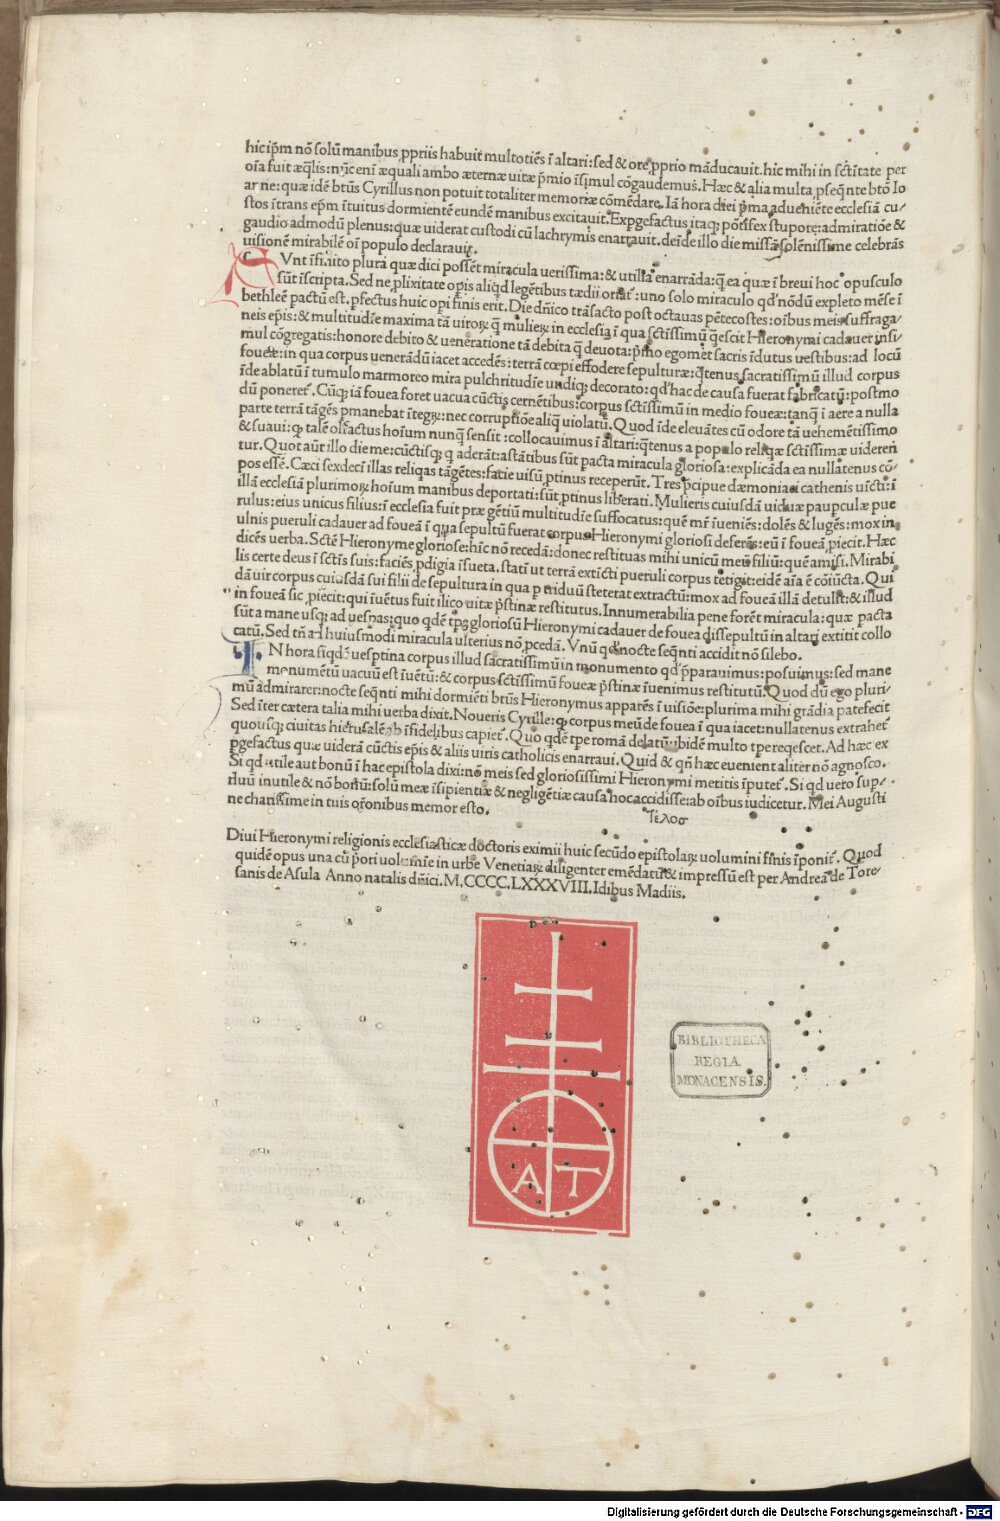 hic ip̄m nō solū manibus ꝓpriis habuit multotiēs ī altari: sed & ore ꝓprio māducauit. hic mihi in sc̄titate per
oīa fuit æq̄lis: nūc eni æquali ambo æternæ uitæ p̄mio īsimul cōgaudemus. Hæc & alia multa ꝓseq̄nte btō Io
ar ne: quæ idē btūs Cyrillus non potuit totaliter memoriæ cōmēdare. Iā hora diei p̄ma adueniēte ecclesiā cu⸗
stos ītrans ep̄m ītuitus dormientē eundē manibus excitauit. Expgefactus itaq; pōtifex stupore: admiratiōe &
gaudio admodū plenus: quæ uiderat custodi cū lachrymis enarrauit. deīde illo die missā solēnissime celebrās
uisionē mirabilē oī populo declarauit.
SVnt īfinito plura quæ dici possēt miracula uerissima: & utilia enarrāda: q̄ ea quæ ī breui hoc opusculo
sūt īscripta. Sed ne ꝓlixitate opis aliq̄d legētibus tædii oriat̄: uno solo miraculo qd' nōdū expleto mēse ī
bethleē pactū est. ꝓfectus huic opi finis erit. Die dn̄ico trāsacto post octauas pētecostes: oībus meis suffraga⸗
neis ep̄is: & multitudīe maxima tā uiroꝝ q̄ mulieꝝ in ecclesia ī qua sc̄tissimū q̄escit Hieronymi cadauer insi⸗
mul cōgregatis: honore debito & ueneratione tā debita q̄ deuota: p̄mo egomet sacris īdutus uestibus: ad locū
foueæ: in qua corpus uenerādū iacet accedēs: terrā cœpi effodere sepulturæ: q̄tenus sacratissimū illud corpus
īde ablatū ī tumulo marmoreo mira pulchritudīe undiq; decorato: qd' hac de causa fuerat fabricatū: postmo
dū poneret̄. Cūq; iā fouea foret uacua cūctis cernētibus: corpus sc̄tissimū in medio foueæ: tanq̄ ī aere a nulla
parte terrā tāgēs ꝑmanebat ītegꝝ: nec corruptiōe aliq̄ uiolatū. Quod īde eleuātes cū odore tā uehemētissimo
& suaui: qꝫ talē olfactus hoīum nunq̄ sensit: collocauimus ī altari: q̄tenus a populo reliqæ sc̄tissimæ uideren̄
tur. Quot aūt illo die me: cūctisq; q̄ aderāt: astātibus sūt pacta miracula gloriosa: explicāda ea nullatenus cō⸗
pos essē. Cæci sexdecī illas reliqas tāgētes: facie uisū ꝓtinus receperūt. Tres p̄cipue dæmoniaci cathenis uīcti: ī
illā ecclesiā plurimoꝝ hoīum manibus deportati: sūt ꝓtinus liberati. Mulieris cuiusdā uiduæ paupculæ pue
rulus: eius unicus filius: ī ecclesia fuit præ gētiū multitudīe suffocatus: quē mr̄ īueniēs: dolēs & lugēs: mox in
ulnis pueruli cadauer ad foueā ī qua sepultū fuerat corpus Hieronymi gloriosi deferēs: eū ī foueā ꝓiecit. Hæc
dicēs uerba. Sc̄te Hieronyme gloriose: hīc nō recedā: donec restituas mihi unicū meū filiū: quē amisi. Mirabi
lis certe deus ī sc̄tis suis: faciēs ꝓdigia īsueta, statī ut terrā extīcti pueruli corpus tetigit: eidē aīa ē cōiūcta. Qui
dā uir corpus cuiusdā sui filii de sepultura in qua ꝑ triduū steterat extractū: mox ad foueā illā detulit: & illud
in foueā sic ꝓiecit: qui īuētus fuit ilico uitæ p̄stinæ restitutus. Innumerabilia pene forēt miracula: quæ pacta
sūt a mane usq; ad uesꝑas: quo qdē tp̄e gloriosū Hieronymi cadauer de fouea dissepultū in altari extitit collo
catū. Sed tn̄ ad huiusmodi miracula ulterius nō ꝓcedā. Vnū qd nocte seq̄nti accidit nō silebo.
IN hora siqdē uesptina corpus illud sacratissimū in monumento qd' p̄parauimus: posuimus: sed mane
monumētū uacuū est īuētū: & corpus sc̄tissimū foueæ p̄stinæ īuenimus restitutū. Quod dū ego pluri⸗
mū admirarer: nocte seq̄nti mihi dormiēti btūs Hieronymus apparēs ī uisiōe: plurima mihi grādia patefecit
Sed īter cætera talia mihi uerba dixit. Noueris Cyrille: qꝫ corpus meū de fouea ī qua iacet: nullatenus extrahet̄
quousq; ciuitas hierusalē ab īfidelibus capiet̄. Quo qdē tp̄e romā delatū ibidē multo tp̄e reqescet. Ad hæc ex
pgefactus quæ uiderā cūctis ep̄is & aliis uiris catholicis enarraui. Quid & qn̄ hæc euenient aliter nō agnosco.
Si qd utile aut bonū ī hac epistola dixi: nō meis sed gloriosissimi Hieronymi meritis īputet̄. Si qd uero sup⸗
fluū inutile & nō bonū: solū meæ īsipientiæ & negligētiæ causa hoc accidisse: ab oībus iudicetur. Mei Augusti
ne charissime in tuis orōnibus memor esto.
Τέλοσ
Diui Hieronymi religionis ecclesiasticæ doctoris eximii huic secūdo epistolaꝝ uolumini finis īponit̄. Quod
quidē opus una cū p̄ori uolumīe in urbe Venetiaꝝ diligenter emēdatū & impressū est per Andreā de Tore⸗
sanis de Asula Anno natalis dn̄ici. M.CCCC.LXXXVIII. Idibus Madiis.
A T
BIBLIOTHECA
REGIA
MONACENSIS.
Digitalisierung gefördert durch die Deutsche Forschungsgemeinschaft - DFG